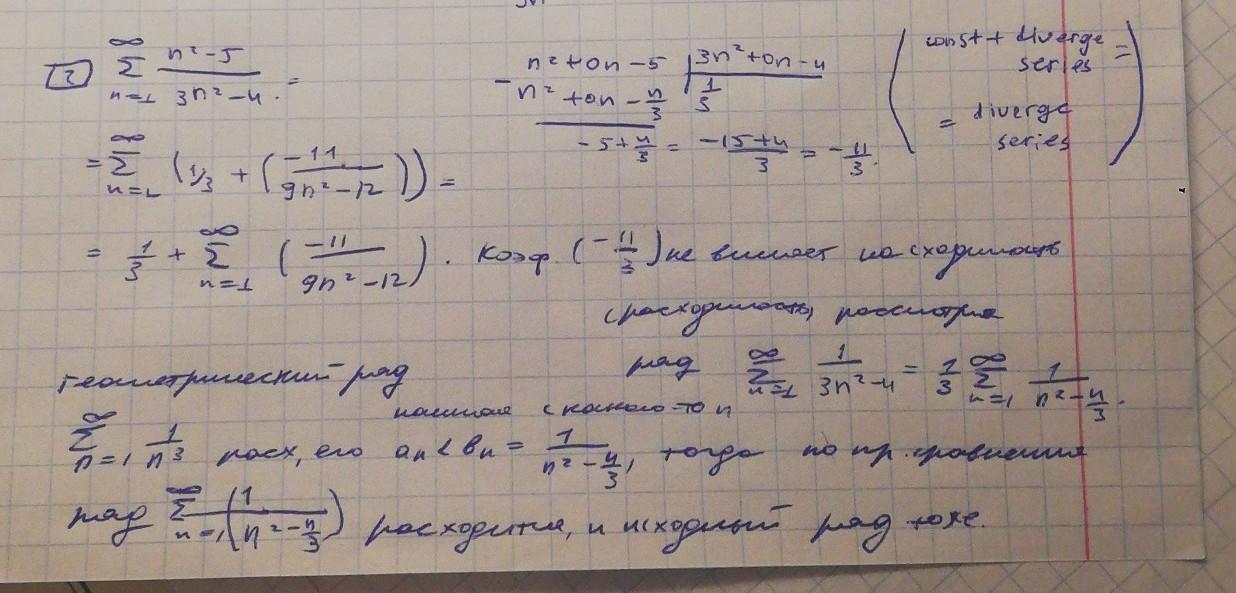 2 ∞ Σ n=1 n² - 5 / 3n² - 4 =
- n² + 0n - 5 | 3n² + 0n - 4
n² + 0n - 4/3 | 1/3
- 5 + 4/3 = -15 + 4 / 3 = - 11/3.
( const + diverge series =
= diverge series )
= ∞ Σ n=1 (1/3 + (-11 / 9n² - 12)) =
= 1/3 + ∞ Σ n=1 (-11 / 9n² - 12). Коэф. (- 11/3) не влияет на сходимость
(расходимость), рассмотрим
ряд ∞ Σ n=1 1 / 3n² - 4 = 1/3 ∞ Σ n=1 1 / n² - 4/3.
Геометрический ряд
начиная с какого-то n
∞ Σ n=1 1 / n³ расх, его aₙ < bₙ = 1 / n² - 4/3, тогда по пр. сравнения
ряд ∞ Σ n=1 (1 / n² - 4/3) расходится, и исходный ряд тоже.